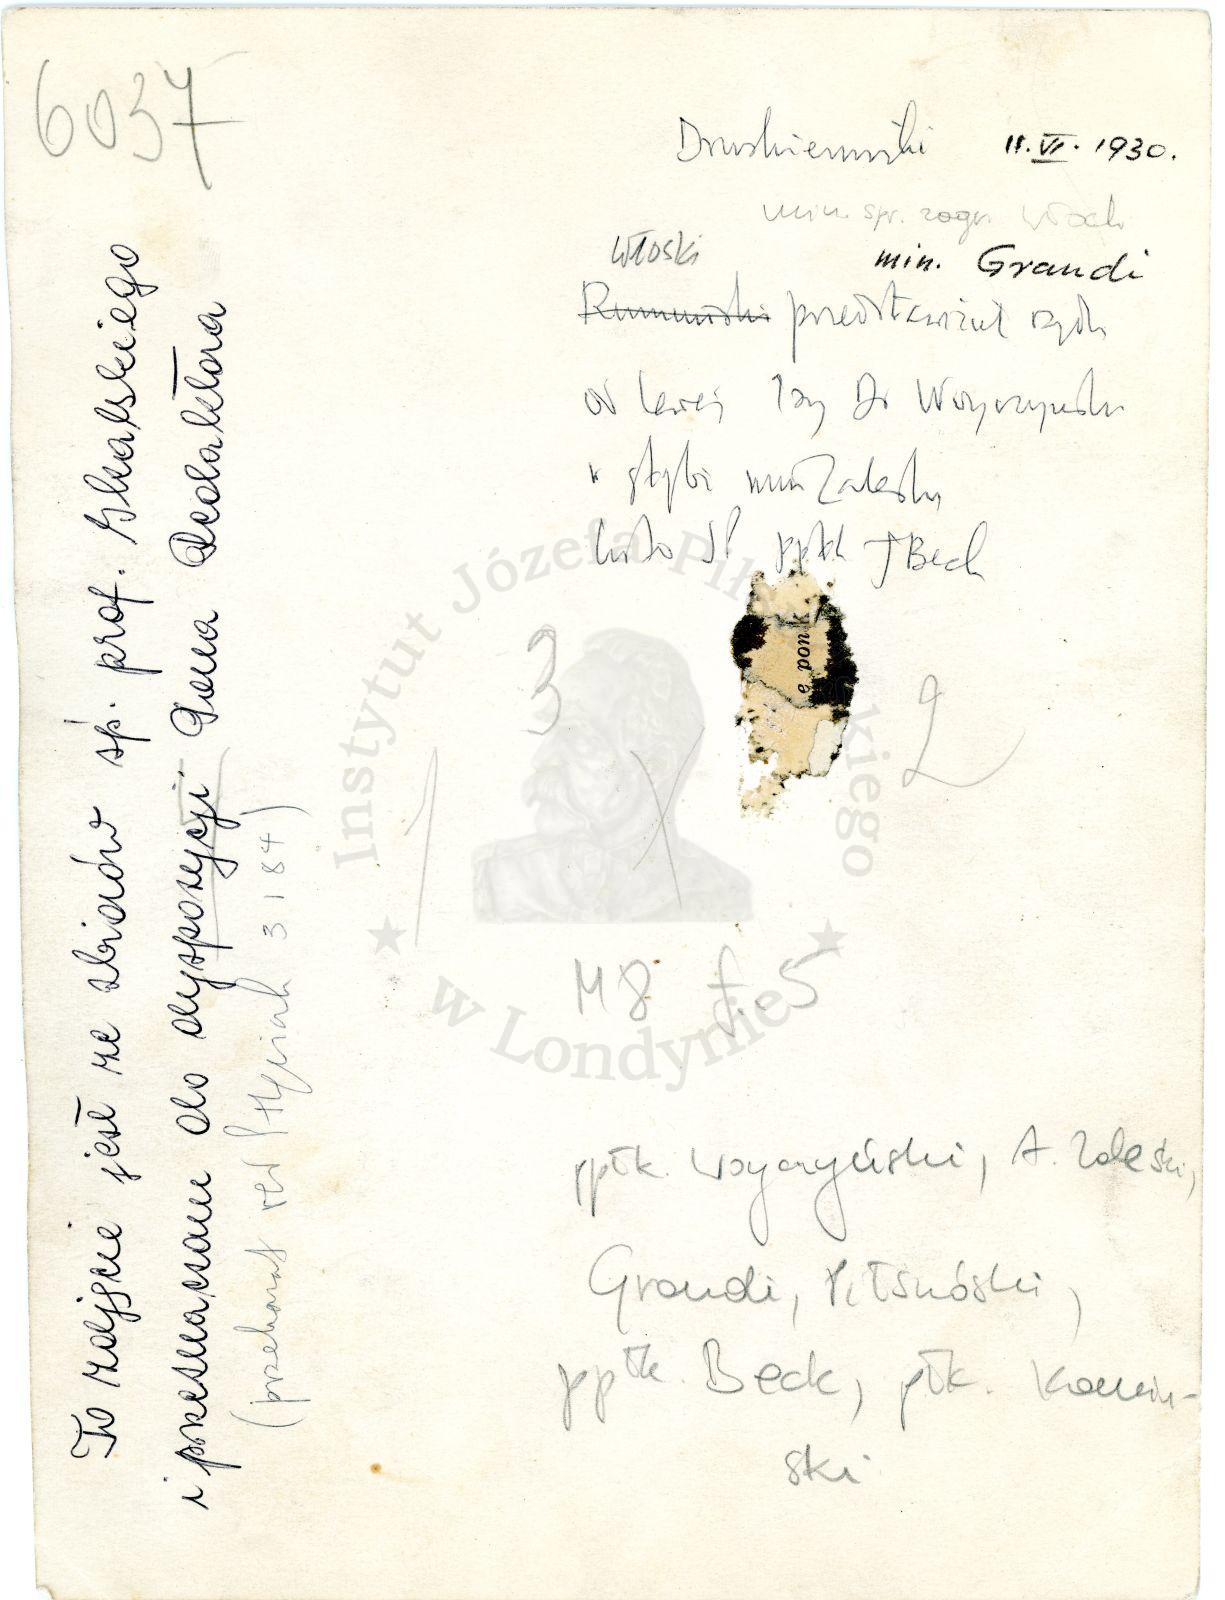 6037
Druskienniki 11.VI.1930.
min. spr. zagr. Włoch
włoski min. Grandi
Rumuński przedstawiciel rządu
od lewej Dr Woyczyński
w głębi min Zaleski
ppłk J Beck
g. ponik
3
1
X
2
M8 f. 5
ppłk. Woyczyński, A. Zaleski,
Grandi, Piłsudski,
ppłk. Beck, płk. Kamiń-
ski
To zdjęcie jest ze zbiorów śp. prof. Skalskiego
i przeznaczam do dyspozycji Pana Redaktora
(przekazał red 3 I 84)
Instytut Józefa Piłsudskiego
w Londynie